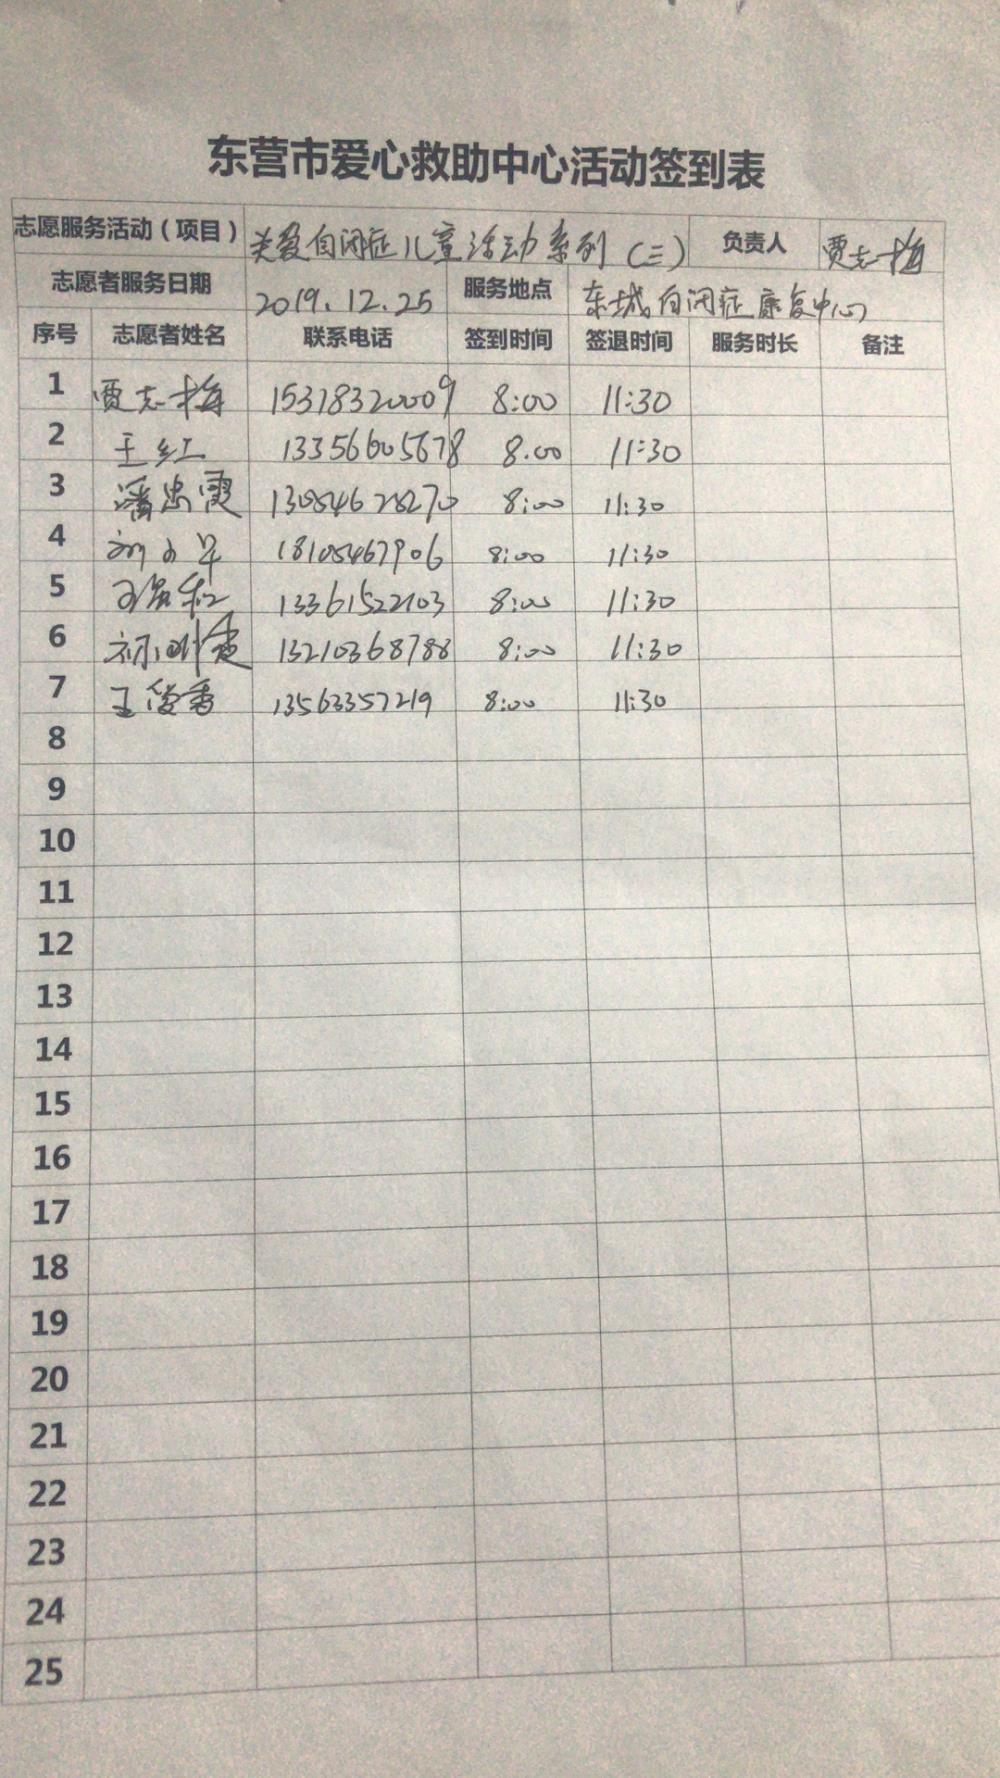 东营市爱心救助中心活动签到表
志愿服务活动（项目） 关爱自闭症儿童活动系列（三） 负责人 贾志梅
志愿者服务日期 2019.12.25 服务地点 东城自闭症康复中心
序号 志愿者姓名 联系电话 签到时间 签退时间 服务时长 备注
1 贾志梅 15318320009 8:00 11:30
2 王红 13356605678 8.00 11:30
3 潘忠霞 13054628270 8:00 11:30
4 18105467906 8:00 11:30
5 13361522103 8:00 11:30
6 13210368788 8:00 11:30
7 王俊香 13563357219 8:00 11:30
8
9
10
11
12
13
14
15
16
17
18
19
20
21
22
23
24
25